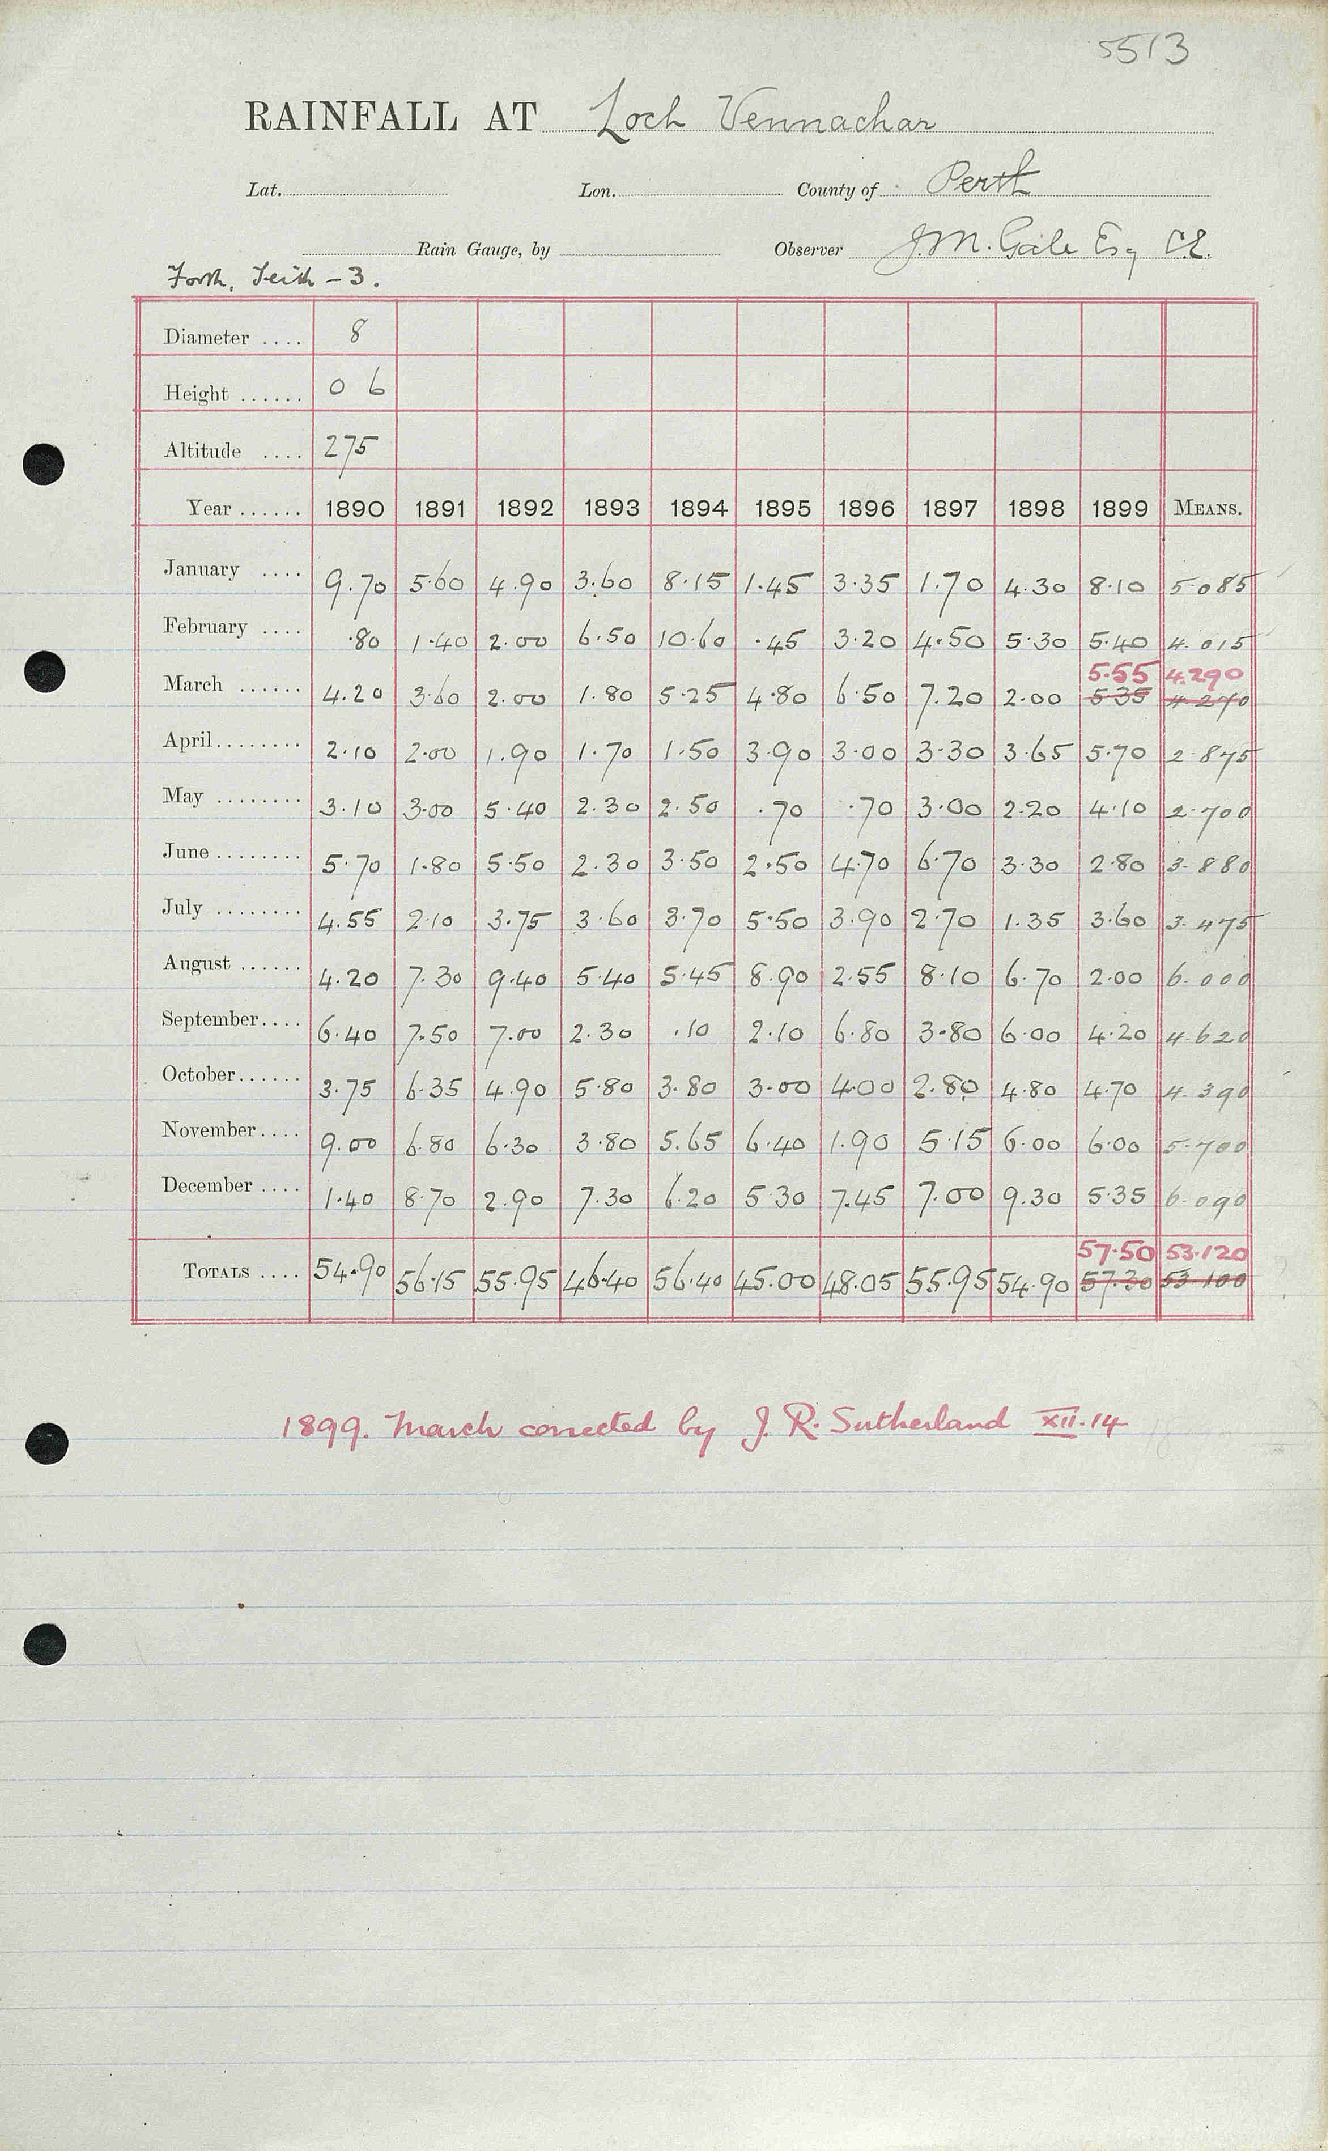 5513
RAINFALL AT Loch Vennachar
Lat. Lon. County of Perth
Rain Gauge, by Observer J.M. Gale Esq C.E.
Forth, Teith - 3.
Diameter .... 8
Height ...... 0 6
Altitude .... 275
Year ...... 1890 1891 1892 1893 1894 1895 1896 1897 1898 1899 MEANS.
January .... 9.70 5.60 4.90 3.60 8.15 1.45 3.35 1.70 4.30 8.10 5.085
February .... .80 1.40 2.00 6.50 10.60 .45 3.20 4.50 5.30 5.40 4.015
5.55 4.290
March ...... 4.20 3.60 2.00 1.80 5.25 4.80 6.50 7.20 2.00 5.35 4.270
April........ 2.10 2.00 1.90 1.70 1.50 3.90 3.00 3.30 3.65 5.70 2.875
May ........ 3.10 3.00 5.40 2.30 2.50 .70 .70 3.00 2.20 4.10 2.700
June........ 5.70 1.80 5.50 2.30 3.50 2.50 4.70 6.70 3.30 2.80 3.880
July ........ 4.55 2.10 3.75 3.60 3.70 5.50 3.90 2.70 1.35 3.60 3.475
August ...... 4.20 7.30 9.40 5.40 5.45 8.90 2.55 8.10 6.70 2.00 6.000
September.... 6.40 7.50 7.00 2.30 .10 2.10 6.80 3.80 6.00 4.20 4.620
October...... 3.75 6.35 4.90 5.80 3.80 3.00 4.00 2.80 4.80 4.70 4.390
November.... 9.00 6.80 6.30 3.80 5.65 6.40 1.90 5.15 6.00 6.00 5.700
December .... 1.40 8.70 2.90 7.30 6.20 5.30 7.45 7.00 9.30 5.35 6.090
57.50 53.120
TOTALS .... 54.90 56.15 55.95 46.40 56.40 45.00 48.05 55.95 54.90 57.30 53.100
1899. March corrected by J. R. Sutherland XII.14